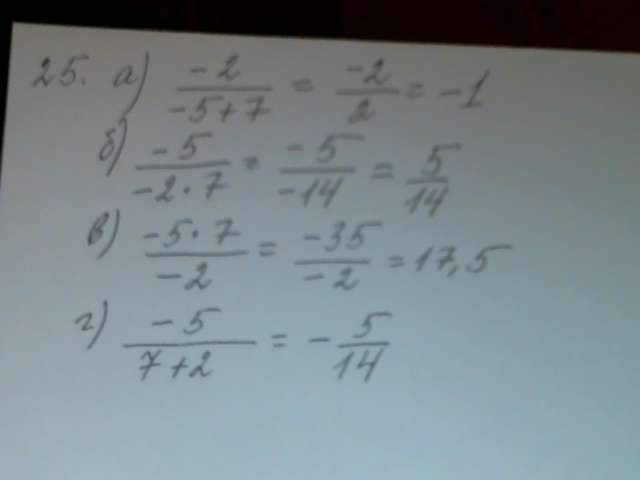 25. а) -2/(-5+7) = -2/2 = -1
б) -5/(-2·7) = -5/-14 = 5/14
в) -5·7/-2 = -35/-2 = 17,5
г) -5/(7+2) = - 5/14